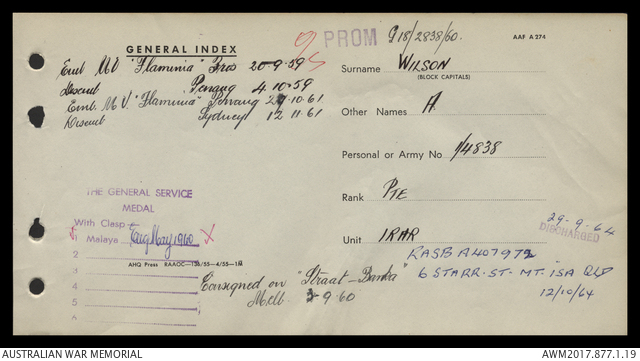 GENERAL INDEX
PROM 918/2838/60.
AAF A 274
Emb MV "Flaminia" Bris 20-9-59
Disemb Penang 4.10.59
Emb. M.V. "Flaminia" Penang 29.10.61
Disemb Sydney 12.11.61
Surname WILSON
(BLOCK CAPITALS)
Other Names A
Personal or Army No 1/4838
Rank PTE
Unit 1RAR
29-9-64
DISCHARGED
RASB A407979
6 STARR-ST- MT. ISA QLD
12/10/64
THE GENERAL SERVICE
MEDAL
With Clasp
1 Malaya Aug/May 1960 X
2
3
4
5
AHQ Press RAAOC—
Consigned on "Straat-Banka"
Melb. -9-60
AUSTRALIAN WAR MEMORIAL
AWM2017.877.1.19